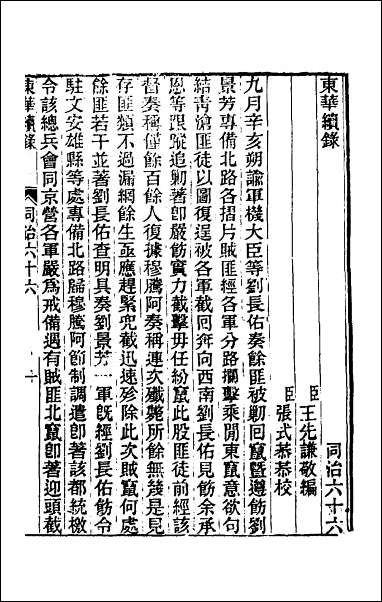 東華續錄
同治六十六
臣王先謙敬編
臣張式恭恭校
九月辛亥朔諭軍機大臣等劉長佑奏餘匪被剿回竄暨遵飭劉
景芳專備北路各摺片賊匪經各軍分路攔擊乘間東竄意欲句
結青滄匪徒以圖復逞被各軍截回奔向西南劉長佑見飭余承
恩等跟蹤追剿著卽嚴飭實力截擊毋任紛竄此股匪徒前經該
督奏稱僅餘百餘人復據穆騰阿奏稱連次殲斃所餘無幾是見
存匪類不過漏網餘生亟應趕緊兜截迅速殄除此次賊竄何處
餘匪若干並著劉長佑查明具奏劉景芳一軍旣經劉長佑飭令
駐文安雄縣等處專備北路歸穆騰阿節制調遣卽著該都統檄
令該總兵會同京營各軍嚴爲戒備遇有賊匪北竄卽著迎頭截
東華續錄
同治六十六
一